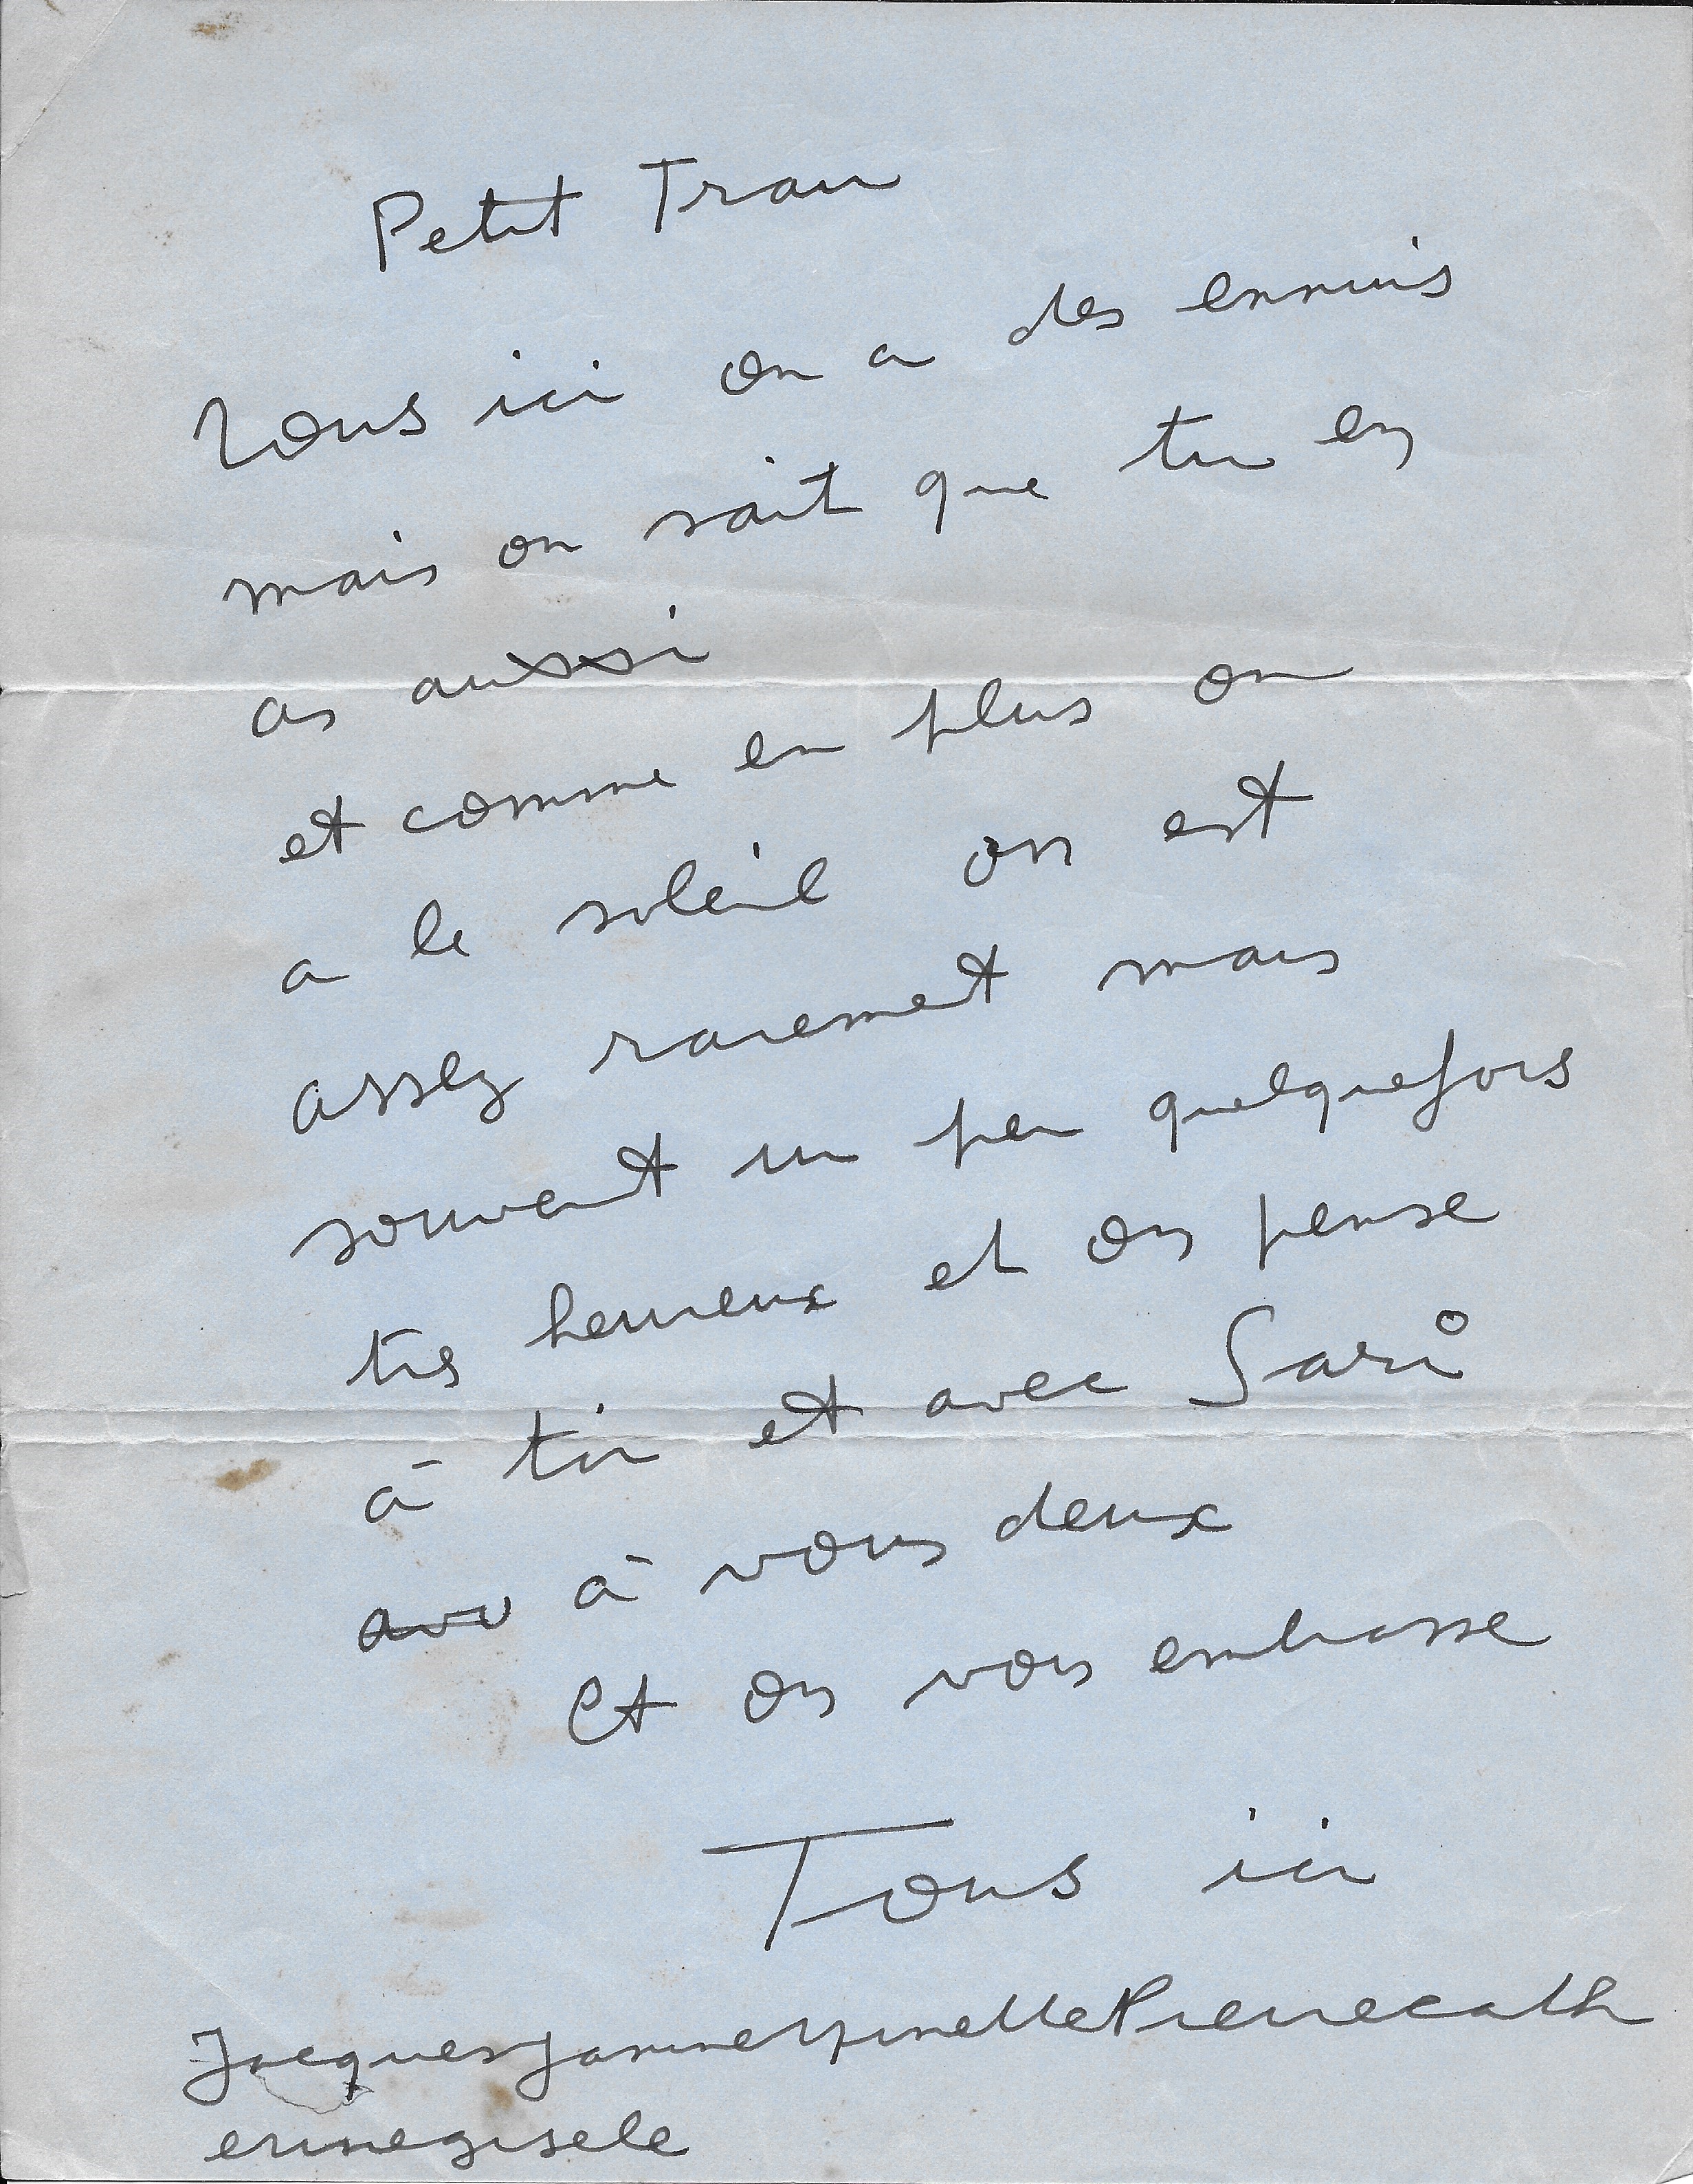 Petit Trau
Tous ici on a des ennuis
mais on sait que tu en
as aussi
et comme en plus on
a le soleil on est
assez rarement mais
souvent un peu quelquefois
très heureux et on pense
à toi et avec Sari
à vous deux
Et on vous embrasse
Tous ici
JacquesJanineMinettePierrecath
erinegisele